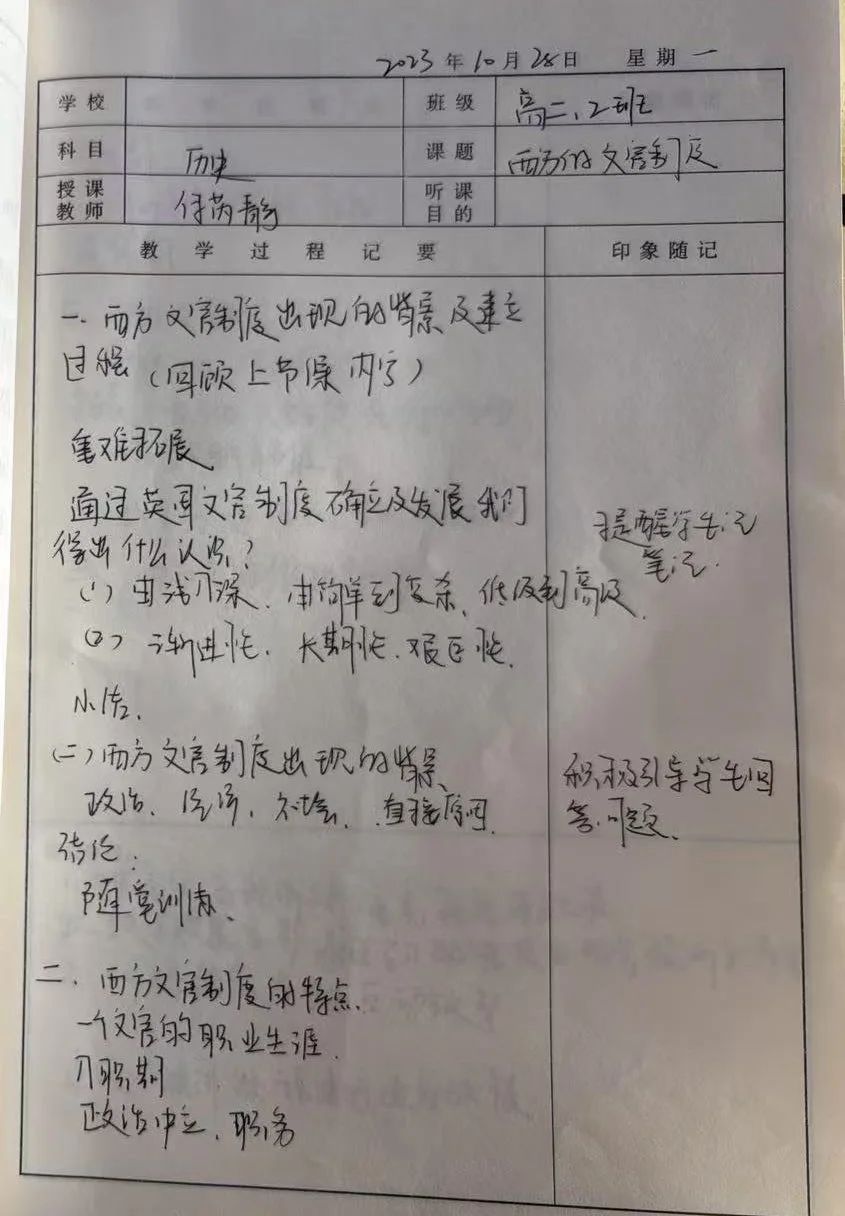 2023年10月28日 星期一
学校 班级 高二、2班
科目 历史 课题 西方的文官制度
授课教师 任芮静 听课目的
教学过程记要 印象随记
一. 西方文官制度出现的背景及建立
过程（回顾上节课内容）
重难拓展
通过英国文官制度确立及发展我们
得出什么认识？
提醒学生记
笔记.
(1) 由浅入深、由简单到复杂、低级到高级.
(2) 渐进性、长期性、艰巨性.
小结.
(二) 西方文官制度出现的背景、
政治、经济、社会、直接原因
积极引导学生回
答问题、
结论：
随堂训练、
二. 西方文官制度的特点.
一个文官的职业生涯.
入职前
政治中立、职务